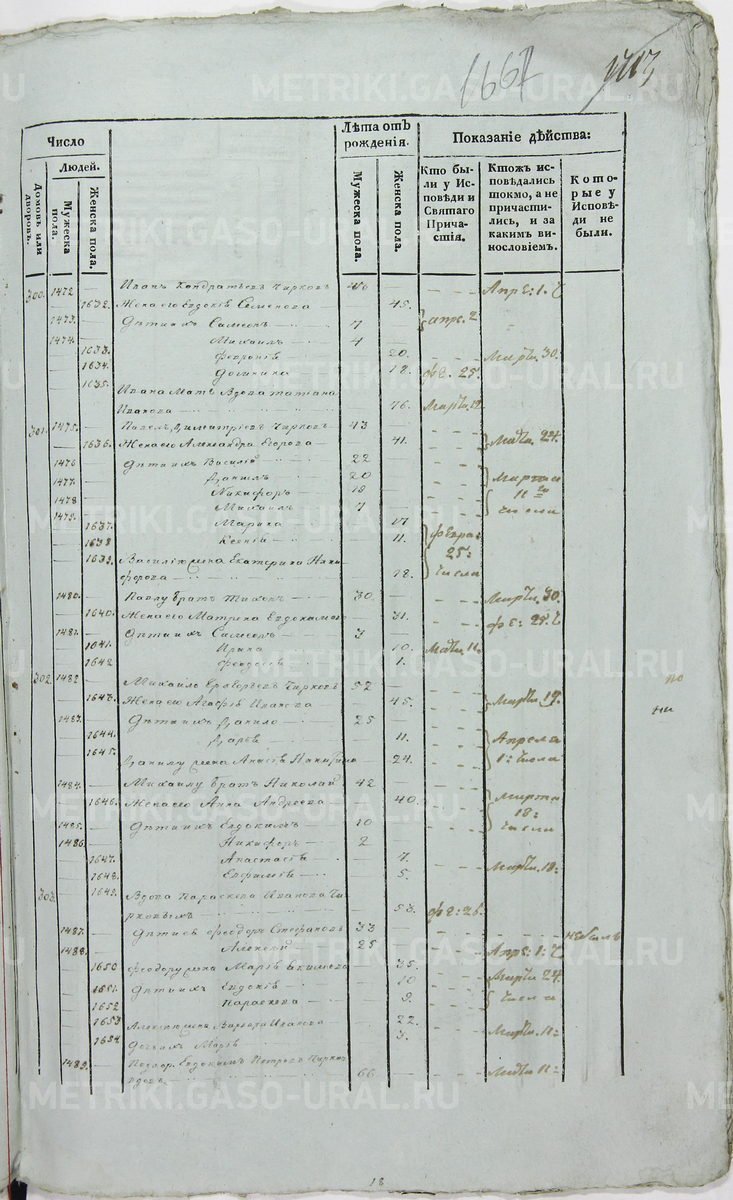 1667
Число
Лѣта отъ рожденія.
Показаніе дѣйства:
Людей.
Домовъ или дворовъ.
Мужеска пола.
Женска пола.
Мужеска пола.
Женска пола.
Кто были у Исповѣди и Святаго Причастія.
Ктожъ исповѣдались токмо, а не причастились, и за какимъ винословіемъ.
Которые у Исповѣди не были.
300. 1472 — Иванъ Кондратьевъ Чирковъ 46 — Апрѣ: 1. Ч
— 1632. Жена его Евдокія Семенова — 45.
1473. — Дѣти ихъ Симеонъ 7 — апрѣ. 2
1474. — Михаилъ 4
— 1633. Феоронія 20. Марта. 30.
— 1634. Домника 12. фе. 25.
— 1635. Ивана Мат. Вдова Татіана
Иванова 76. Марта. 12
301. 1475. — Павелъ Димитріевъ Чирковъ 43 —
— 1636. Жена его Александра Егорова — 41. Марта. 24.
1476 — Дѣти ихъ Василій 22 —
1477. — Даніилъ 20 — Марта
1478 — Никифоръ 18 — 11
1479. — Михаилъ 7 — числа
— 1637. Марина 17
— 1638 Ксенія 11. Февра:
— 1639. Василію жена Екатерина Ники 25:
форова 18. числа
1480. — Павлу братъ Тихонъ 30 — Марта. 30.
— 1640. Жена его Матрена Евдокимова — 31. фе: 25. Ч
1481. — Дѣти ихъ Симеонъ 3 —
— 1641. Ирина — 10. Марта. 11:
— 1642 Феодосія — 1.
302. 1482 — Михайло Григорьевъ Чирковъ 52 —
— 1643. Жена его Агафія Иванова — 45. Марта. 19.
1483. — Дѣти ихъ Данило 25 —
— 1644. Дарья — 11. Апреля
— 1645. Данилу жена Анисья Никитина — 24. 1: числа
1484. — Михаилу братъ Николай 42 —
— 1646. Жена его Анна Андреева — 40. Марта
1485. — Дѣти ихъ Евдокимъ 10 — 18:
1486. — Никифоръ 2 — числа
— 1647. Анастасія — 7.
— 1648. Евфимія — 5. Марта. 18:
303. — 1649. Вдова Параскева Иванова Чи
рковыхъ — 53. фе: 26.
1487. — Дѣти ея Феодоръ Стефановъ 33 — не былъ
1488. — Алексѣй 25 — Апрѣ: 1: Ч
— 1650 Феодору жена Марія Екимова — 35. Марта 24.
— 1651. Дѣти ихъ Евдокія — 10 числа
— 1652 Параскева — 9.
— 1653 Алексѣю жена Варвара Иванова — 22.
— 1654 Дочь ихъ Марія — 3. Марта. 11:
1489. — Подвор. Евдокимъ Петровъ Чирко
66 — Марта 11:
по
ни
18
METRIKI.GASO-URAL.RU